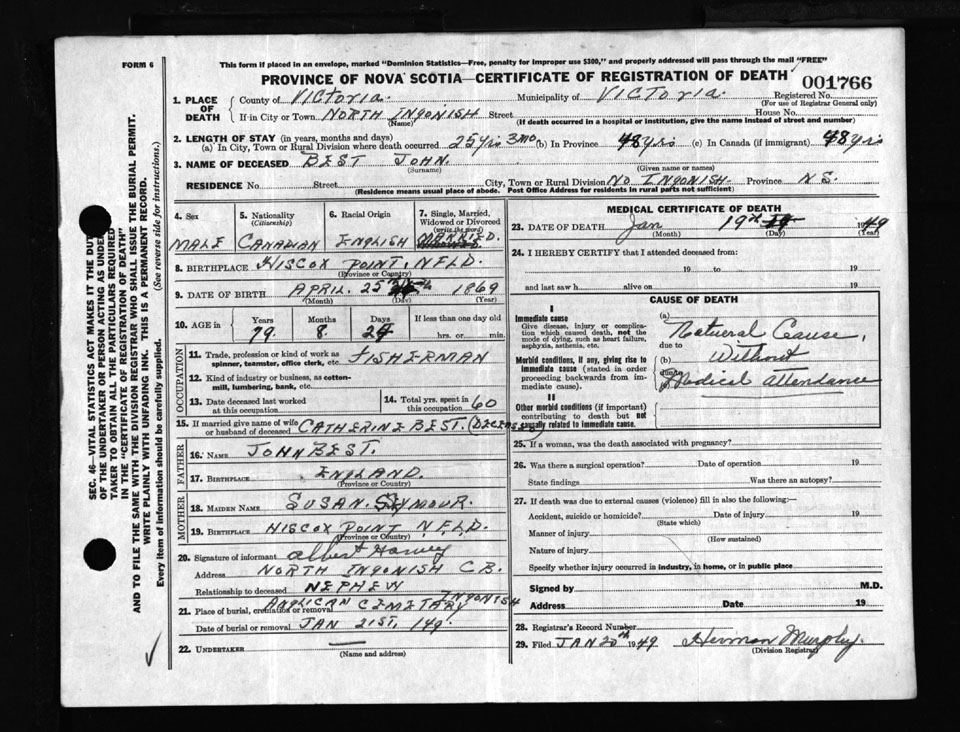 FORM 6
This form if placed in an envelope, marked "Dominion Statistics—Free, penalty for improper use $300," and properly addressed will pass through the mail "FREE"
PROVINCE OF NOVA SCOTIA—CERTIFICATE OF REGISTRATION OF DEATH
001766
1. PLACE OF DEATH
County of VICTORIA. Municipality of VICTORIA. Registered No.
(For use of Registrar General only)
If in City or Town NORTH INGONISH Street House No.
(Name) (If death occurred in a hospital or institution, give the name instead of street and number)
2. LENGTH OF STAY (in years, months and days)
(a) In City, Town or Rural Division where death occurred 25 yrs 3 mo. (b) In Province 48 yrs (c) In Canada (if immigrant) 48 yrs
3. NAME OF DECEASED BEST JOHN.
(Surname) (Given name or names)
RESIDENCE No. Street City, Town or Rural Division NO INGONISH Province N S.
(Residence means usual place of abode. Post Office Address for residents in rural parts not sufficient)
SEC. 46—VITAL STATISTICS ACT MAKES IT THE DUTY
OF THE UNDERTAKER OR PERSON ACTING AS UNDER-
TAKER TO OBTAIN ALL THE PARTICULARS REQUIRED
IN THE "CERTIFICATE OF REGISTRATION OF DEATH"
AND TO FILE THE SAME WITH THE DIVISION REGISTRAR WHO SHALL ISSUE THE BURIAL PERMIT.
WRITE PLAINLY WITH UNFADING INK. THIS IS A PERMANENT RECORD.
Every item of information should be carefully supplied. (See reverse side for instructions.)
4. Sex
MALE
5. Nationality
(Citizenship)
CANADIAN
6. Racial Origin
ENGLISH
7. Single, Married,
Widowed or Divorced
(write the word)
MARRIED.
8. BIRTHPLACE HISCOX POINT, NFLD.
(Province or Country)
9. DATE OF BIRTH APRIL. 25 1869
(Month) (Day) (Year)
10. AGE in
Years Months Days If less than one day old
79. 8. 24 hrs. or min.
OCCUPATION
11. Trade, profession or kind of work as
spinner, teamster, office clerk, etc. FISHERMAN
12. Kind of industry or business, as cotton-
mill, lumbering, bank, etc.
13. Date deceased last worked
at this occupation
14. Total yrs. spent in
this occupation 60
15. If married give name of wife
or husband of deceased CATHERINE BEST. (DECEASED
FATHER
16. NAME JOHN BEST.
17. BIRTHPLACE ENGLAND.
(Province or Country)
MOTHER
18. MAIDEN NAME SUSAN. SYMOUR.
19. BIRTHPLACE HISCOX POINT N.F.L.D.
(Province or Country)
20. Signature of informant Albert Harvey
Address NORTH INGONISH C.B.
Relationship to deceased NEPHEW
21. Place of burial, cremation or removal ANGLICAN CEMETARY INGONISH
Date of burial or removal JAN 21ST, 149.
22. UNDERTAKER
(Name and address)
MEDICAL CERTIFICATE OF DEATH
23. DATE OF DEATH Jan 19th 1949
(Month) (Day) (Year)
24. I HEREBY CERTIFY that I attended deceased from:
19 to 19
and last saw h alive on 19
CAUSE OF DEATH
I
Immediate cause
Give disease, injury or complica-
tion which caused death, not the
mode of dying, such as heart failure,
asphyxia, asthenia, etc.
Morbid conditions, if any, giving rise to
immediate cause (stated in order
proceeding backwards from im-
mediate cause).
II
Other morbid conditions (if important)
contributing to death but not
causally related to immediate cause.
(a) Natural Cause,
due to
(b) Without
due to
Medical Attendance
25. If a woman, was the death associated with pregnancy?
26. Was there a surgical operation? Date of operation 19
State findings Was there an autopsy?
27. If death was due to external causes (violence) fill in also the following:—
Accident, suicide or homicide? Date of injury 19
(State which)
Manner of injury
(How sustained)
Nature of injury
Specify whether injury occurred in industry, in home, or in public place
Signed by M.D.
Address Date 19
28. Registrar's Record Number
29. Filed JAN 20th 1949 Herman Murphy.
(Division Registrar)